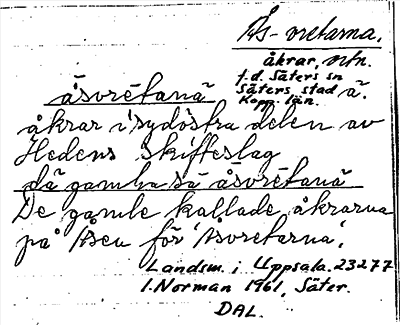 Ås-vretarna.
åkrar, ortn.
f.d. Säters sn
Säters stad
Kopp. län.
å.
å̀svrétanà
åkrar i sydöstra delen av
Hedens skifteslag
dä̀ gamla sä åsvrétanà
De gamle kallade åkrarna
på Åsen för 'Åsvretarna'.
Landsm. i Uppsala. 23277
I. Norman 1961, Säter.
DAL.